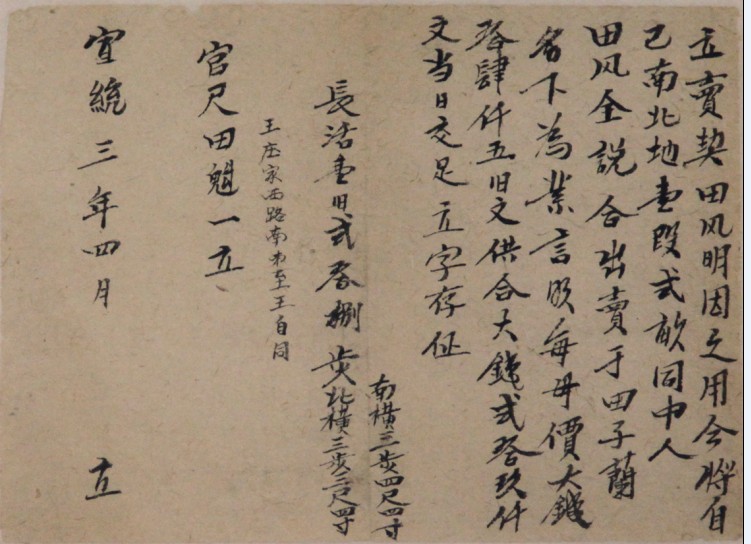 立賣契田风明因乏用今将自
己南北地壹段弍畝同中人
田风全説合出賣于田子蘭
名下為業言明每母價大錢
拾肆仟五旧文供合大錢弍拾玖仟
文当日交足立字存证
南橫三步四尺四寸
長活壹旧弍拾捌步北橫三步三尺四寸
王庄家西路南 至王自同
官尺田魁一立
宣統三年四月 立